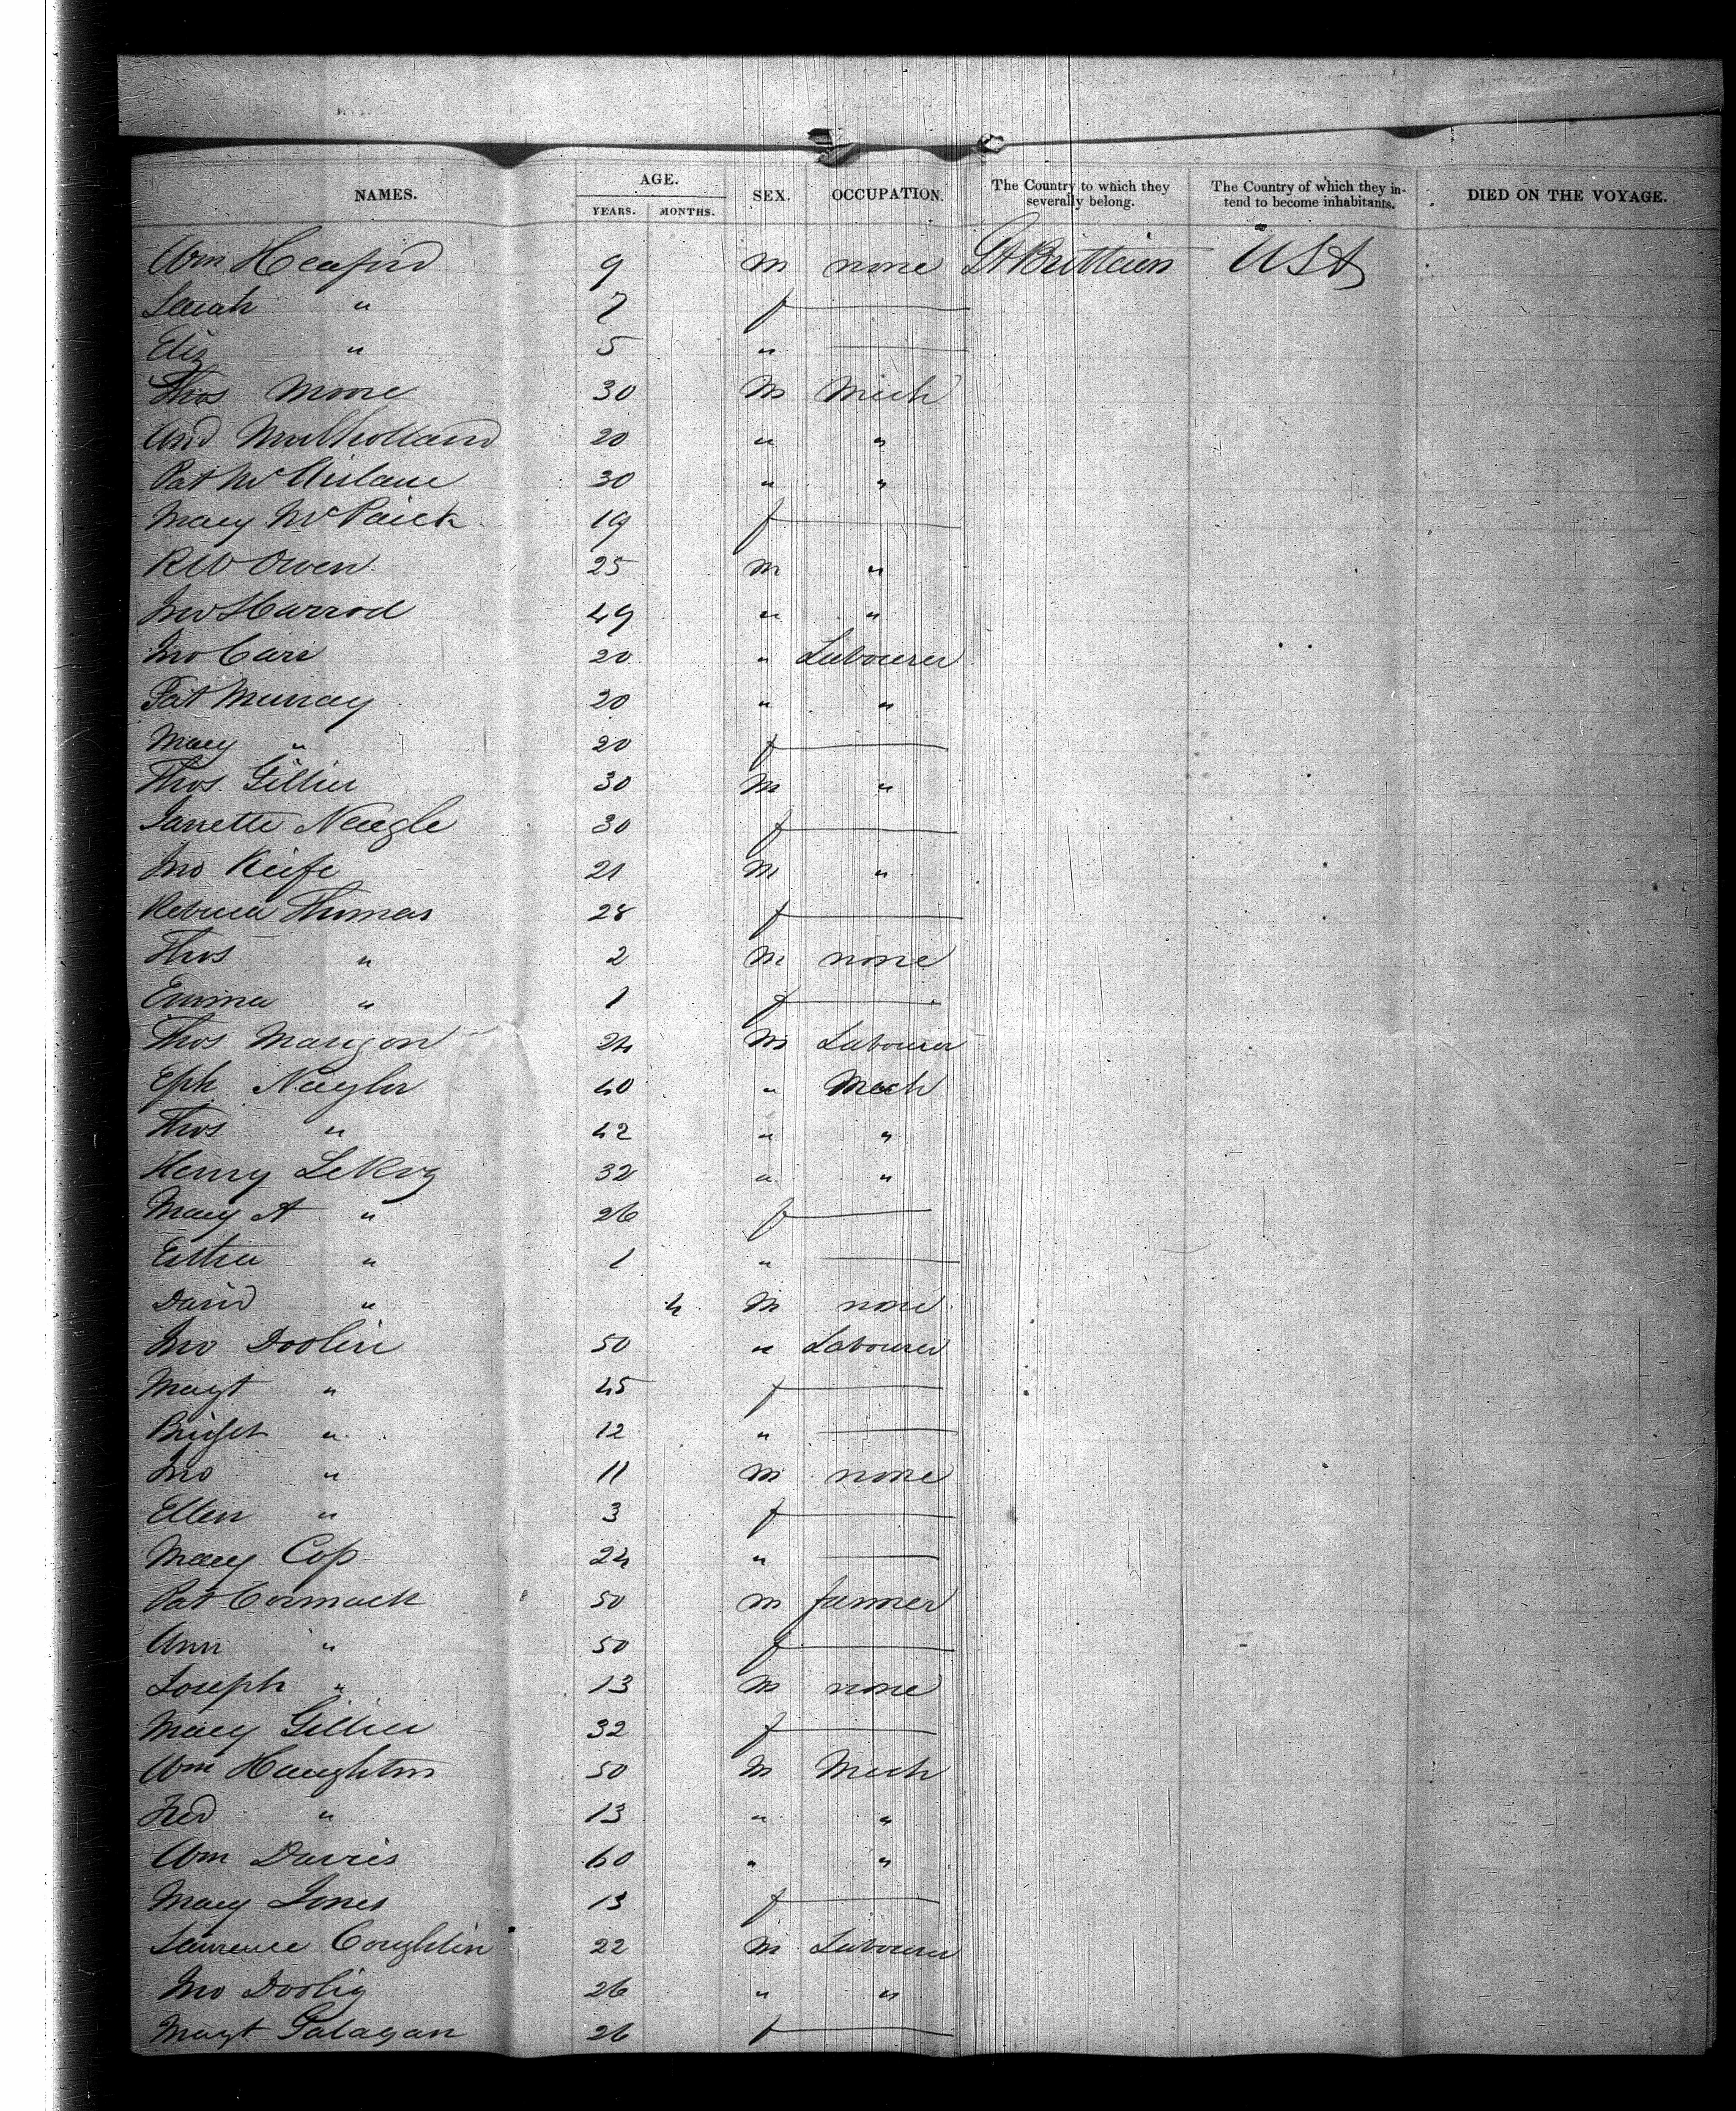 NAMES. AGE. SEX. OCCUPATION. The Country to which they severally belong. The Country of which they intend to become inhabitants. DIED ON THE VOYAGE.
YEARS. MONTHS.
Wm Heafird 9 m none Gt Brittain USA
Sarah " 7 f
Eliz " 5 "
Thos Moore 30 m Mech
And Mulholland 20 " "
Pat Mc 30 " "
Mary Mc 19 f
RW Owen 25 m "
Jno Harrod 49 " "
Jno Carr 20 " Labourer
Pat Murray 20 " "
Mary " 20 f
Thos. Gillier 30 m "
Janette Neagle 30 f
Jno Keife 21 m "
Rebecca Thomas 28 f
Thos " 2 m none
Emma " 1 f
Thos Mangon 24 m Labourer
Eph Naylor 40 " Mech
Thos " 42 " "
Henry LeRoy 32 " "
Mary A " 26 f
Esther " 1 "
David " 4 m none
Jno Doolin 50 " Labourer
Magt " 45 f
Bridget " 12 "
Jno " 11 m none
Ellen " 3 f
Mary Cop 24 "
Pat Cormack 50 m farmer
Ann " 50 f
Joseph " 13 m none
Mary Gillier 32 f
Wm Haughton 50 m Mech
Fred " 13 " "
Wm Davies 60 " "
Mary Jones 13 f
Lawrence Coughlin 22 m Labourer
Jno Doolig 26 " "
Magt Galagan 26 f